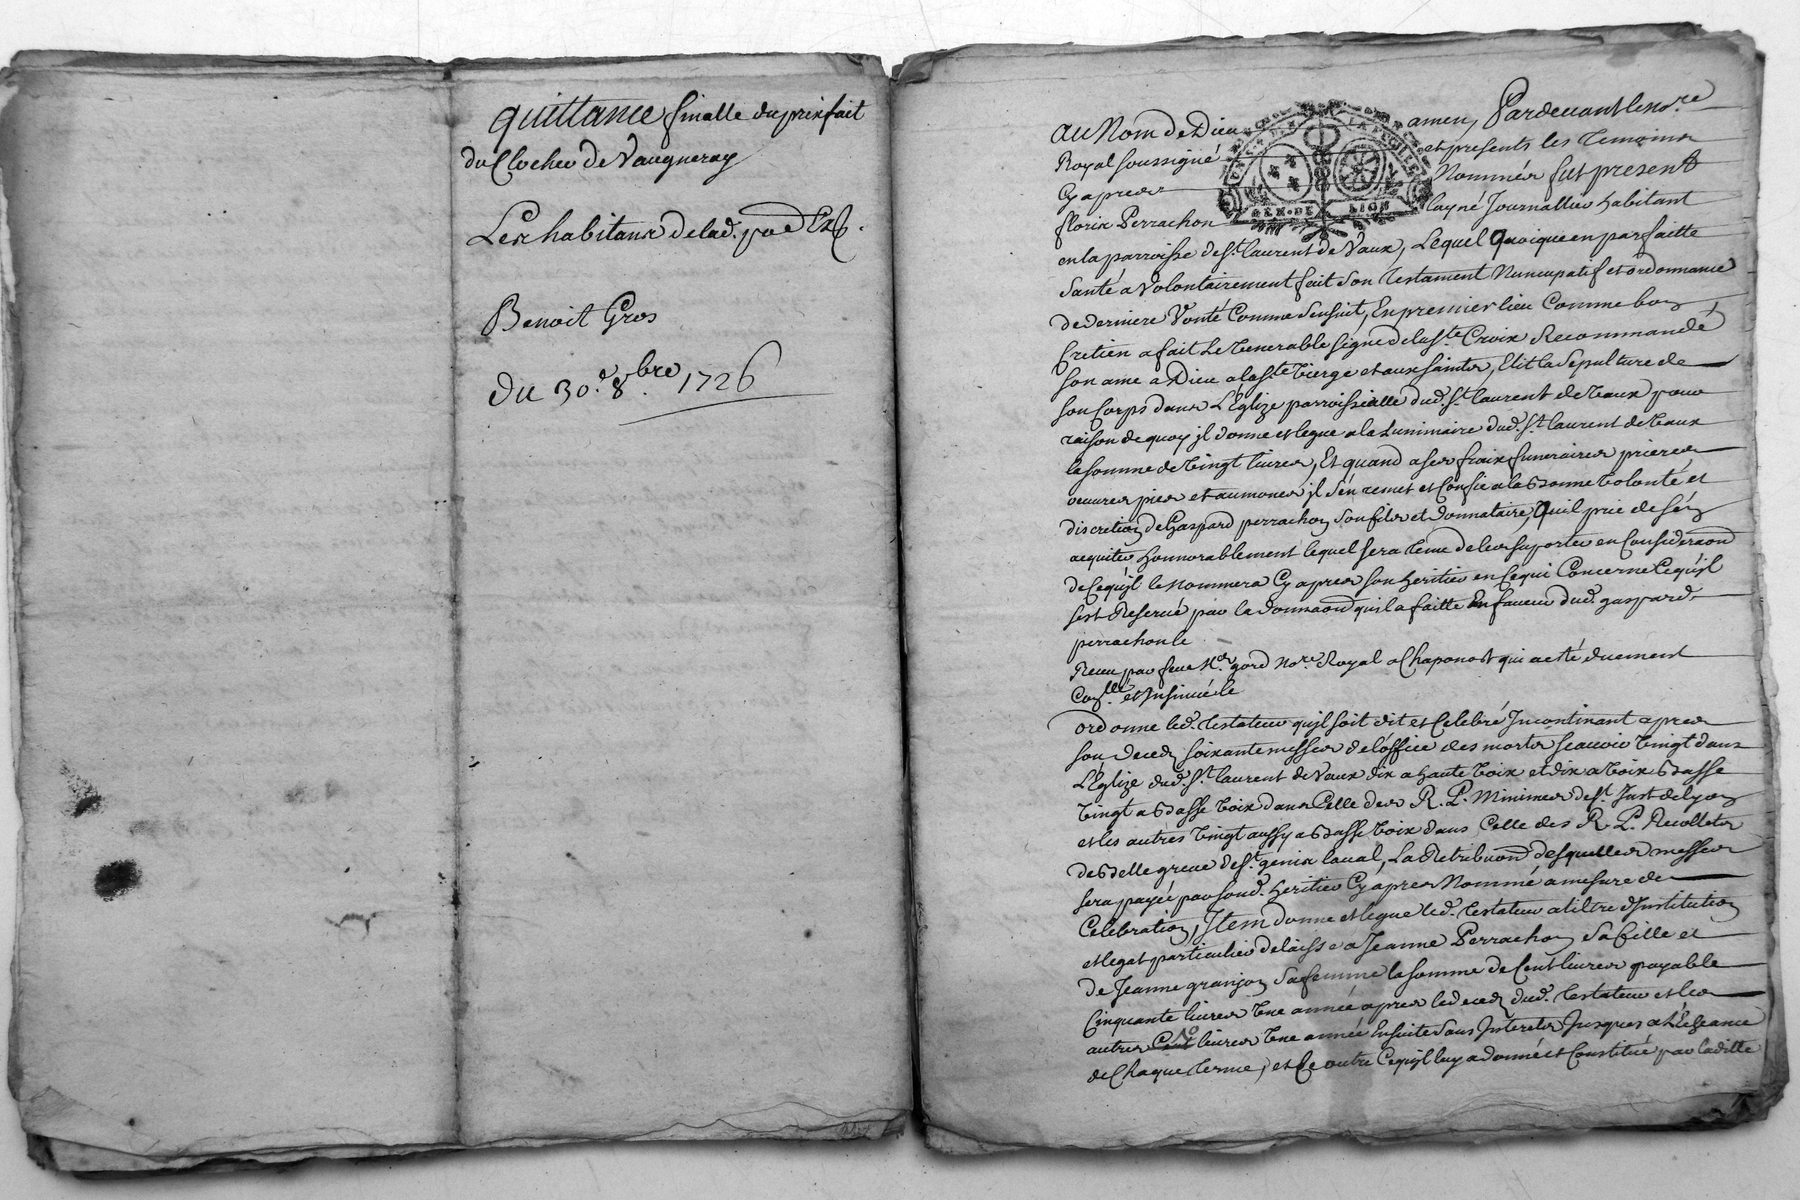 quittance finalle du prixfait
du Clocher de Vaugneray
Les habitans de lad. par
Benoit Gros
Du 30.e 8.bre 1726
au Nom de Dieu amen, Pardevant le no.re
Royal soussigné et presents les temoins
Cy apres Nommés fut present
florix Perrachon layné Journallier habitant
en la parroisse de St. laurent de Vaux, Lequel quoique en parfaitte
santé a volontairement fait son testament Nuncupatif et ordonnance
de derniere Vonté Comme sensuit, En premier lieu Comme bon
Cretien a fait Le Venerable signe de la ste. Croix Recommandé
son ame a Dieu a la ste Vierge et aux saints, Elit la sepulture de
son Corps dans L'Eglize parroissialle dud. St. laurent de Vaux pour
raison de quoy jl donne et legue a la Luminaire dud. St laurent de Vaux
la somme de Vingt livres, Et quand a ses fraix funeraires prieres
oeuvres pies et aumones jl s'en remet et Confie a la Bonne Volonté et
discretion de Gaspard perrachon son fils et donnataire, Quil prie de s'en
acquiter Honnorablement lequel sera tenu de les suporter en Consideraon
de Cequ'jl le nommera Cy apres son heritier en Cequi Concerne Cequ'jl
sest Reservé par la donnaon quil a faitte En faveur dud. gaspard
perrachon le
Receu par feue Mr. gord No.re Royal a Chaponost qui a eté duement
Con.llé et Insinué le
ordonne led. testateur qu'jl soit dit et Celebré Incontinant apres
son deceds soixante messes de l'office des morts scauoir Vingt dans
L'Eglize dud. St. laurent de Vaux dix a haute Voix et dix a Voix Basse
Vingt a Basse Voix dans Celle des R. P. Minimes de St. Just de lyon
et les autres Vingt aussy a Basse Voix dans Celle des R. P. Recollets
de Belle greue de St. genix laual, La Retribuon desquelles messes
sera payée par sond. heritier Cy apres Nommé a mesure de
Celebration, Item donne et legue led. testateur a tiltre d'Institution
et legat particulier delaisse a Jeanne Perrachon sa fille et
de Jeanne granjon sa femme la somme de Cent livres payable
Cinquante livres Une année apres le deceds dud. testateur et les
autres livres Une année Ensuite sans Interets Jusques a L'Echeance
de Chaque terme, et Ce outre Cequ'jl luy a donné et Constitué par laditte